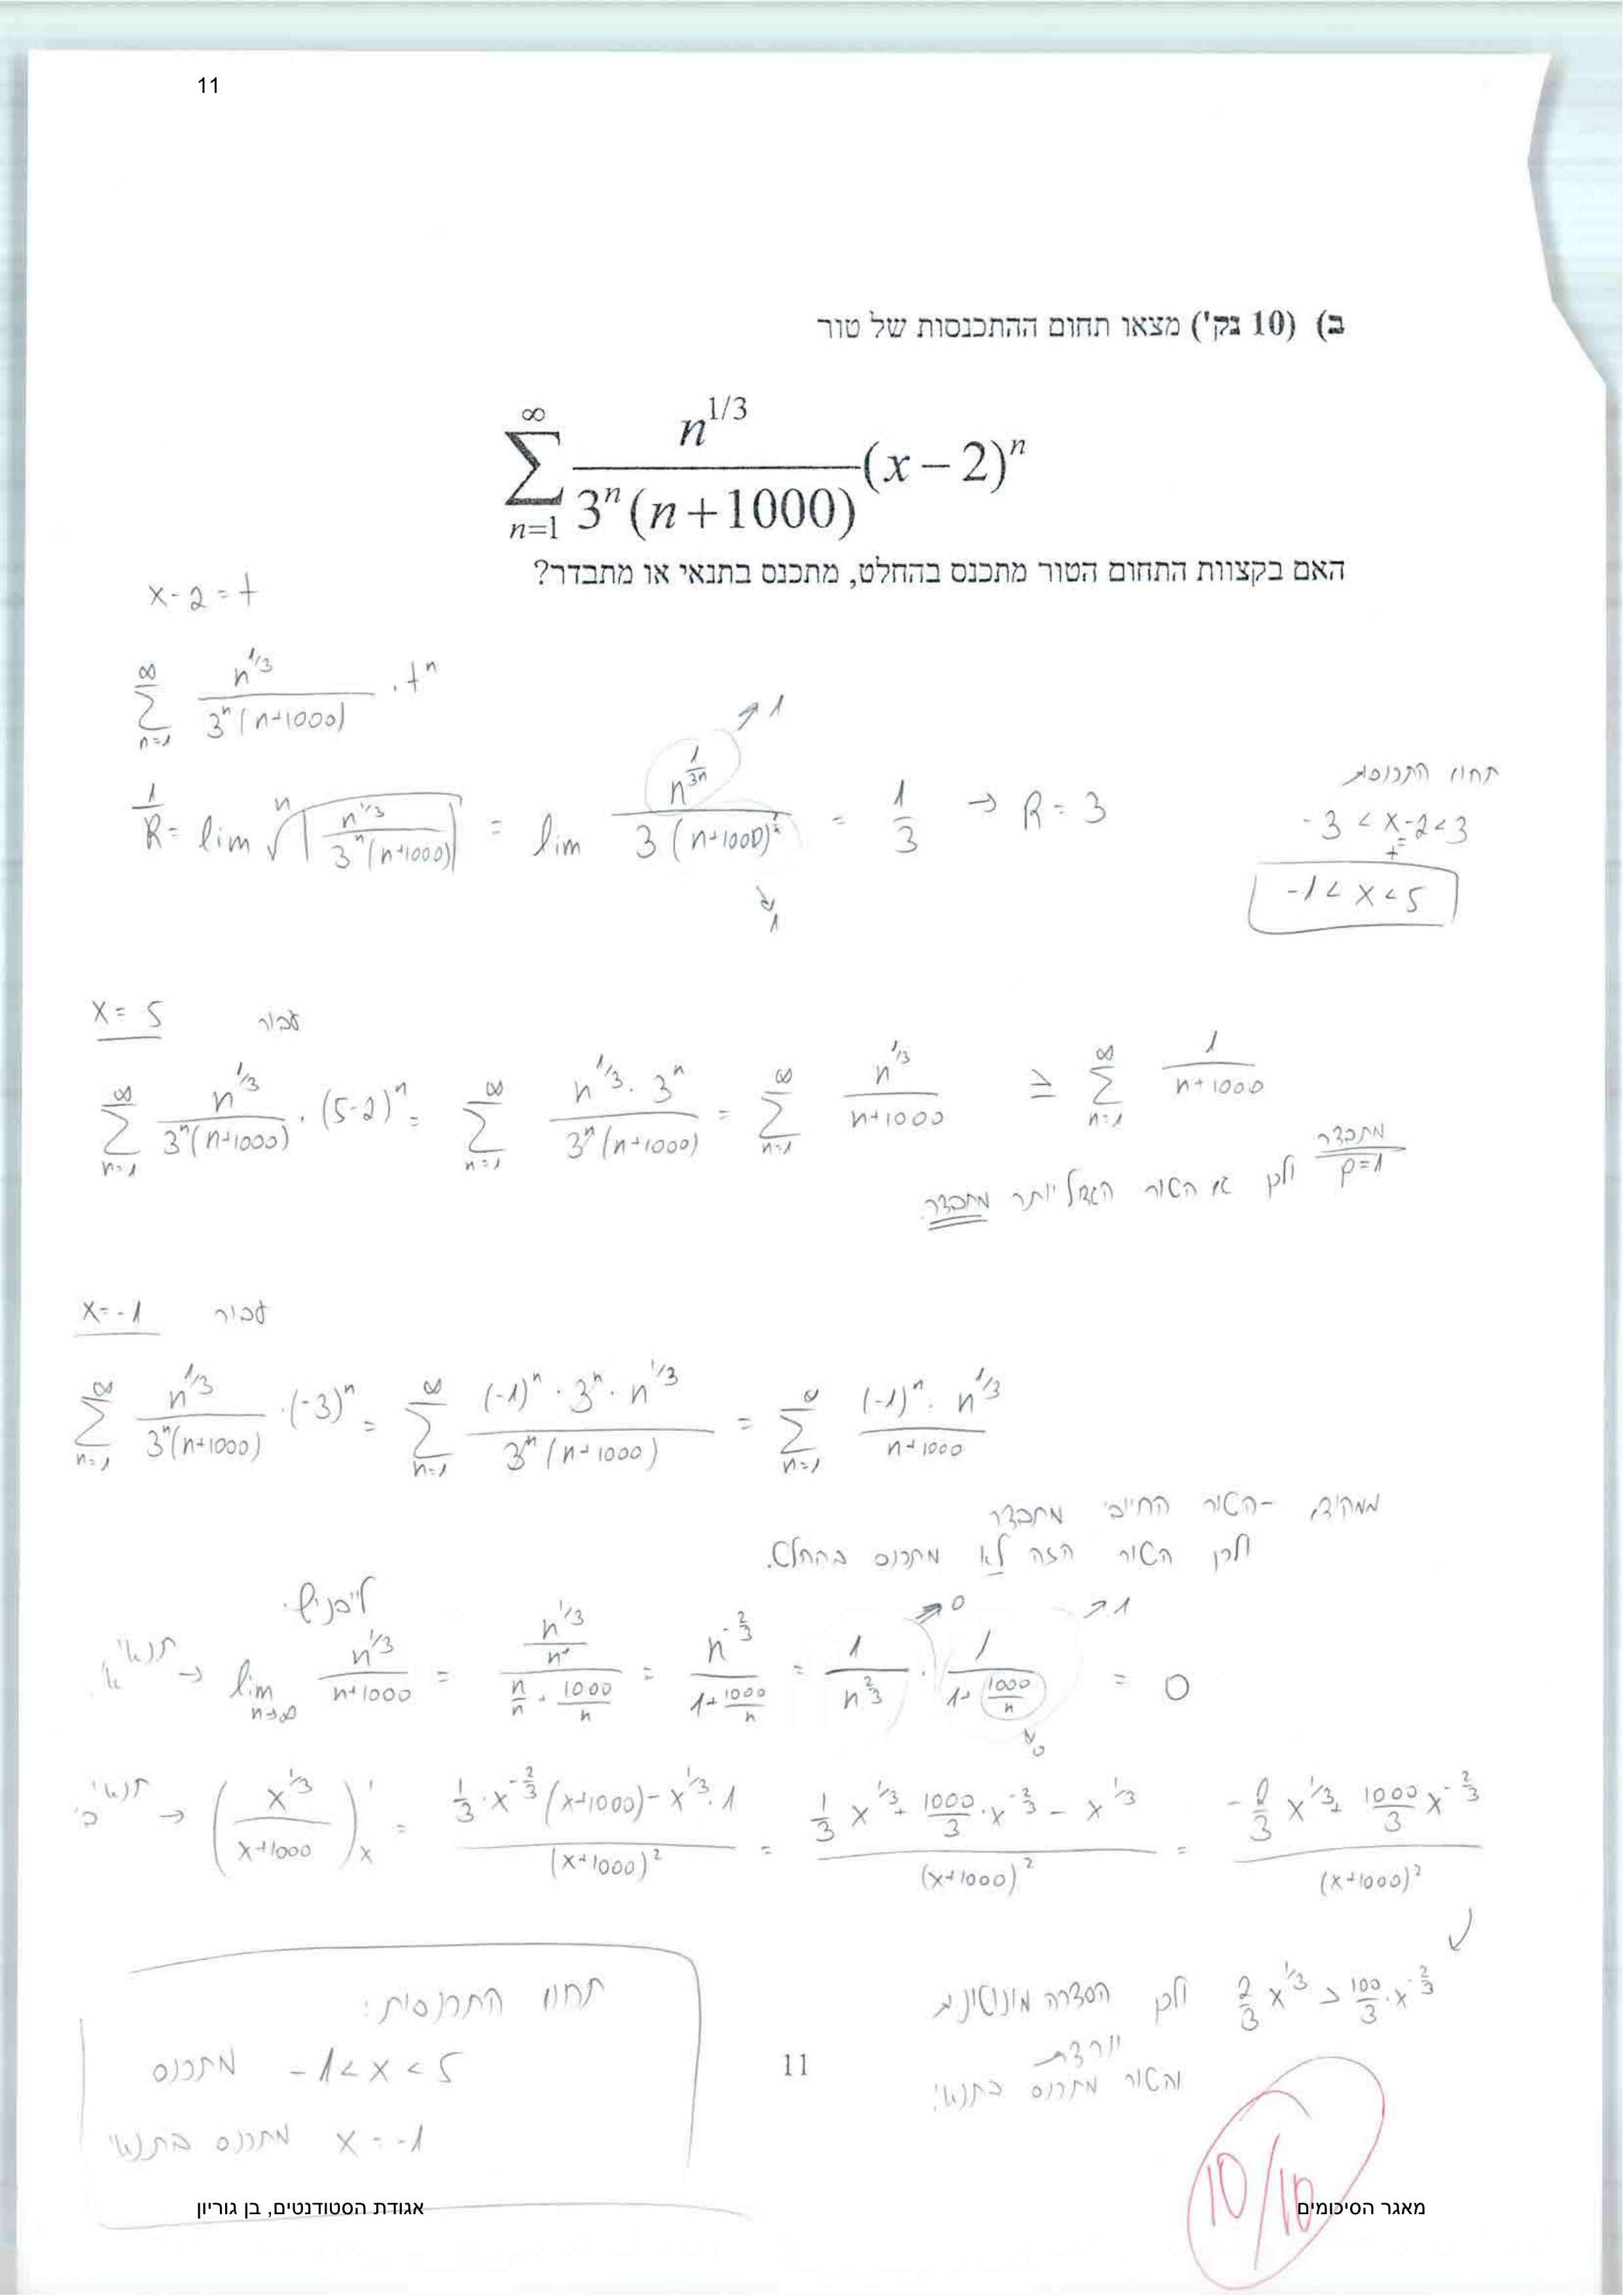 11
ב) (10 נק') מצאו תחום ההתכנסות של טור
∑_{n=1}^{∞} n^{1/3} / (3^n (n+1000)) (x-2)^n
האם בקצוות התחום הטור מתכנס בהחלט, מתכנס בתנאי או מתבדר?
x-2=t
∑_{n=1}^{∞} n^{1/3} / (3^n (n+1000)) · t^n
1/R = lim ⁿ√|n^{1/3} / (3^n (n+1000))| = lim n^{1/3n} / (3 (n+1000)^{1/n}) = 1/3 → R = 3
↗1
↘1
תחום התכנסות
-3 < x-2 < 3
= t
-1 < x < 5
עבור x = 5
∑_{n=1}^{∞} n^{1/3} / (3^n (n+1000)) · (5-2)^n = ∑_{n=1}^{∞} n^{1/3} · 3^n / (3^n (n+1000)) = ∑_{n=1}^{∞} n^{1/3} / (n+1000) ≥ ∑_{n=1}^{∞} 1 / (n+1000)
מתבדר
p=1
ולכן גם הטור הגדול יותר מתבדר.
עבור x = -1
∑_{n=1}^{∞} n^{1/3} / (3^n (n+1000)) · (-3)^n = ∑_{n=1}^{∞} (-1)^n · 3^n · n^{1/3} / (3^n (n+1000)) = ∑_{n=1}^{∞} (-1)^n · n^{1/3} / (n+1000)
- הטור החיובי מתבדר
ולכן הטור הזה לא מתכנס בהחלט.
לייבניץ.
תנאי א. → lim_{n→∞} n^{1/3} / (n+1000) = (n^{1/3} / n^1) / (n/n + 1000/n) = n^{-2/3} / (1 + 1000/n) = 1/n^{2/3} · 1 / (1 + 1000/n) = 0
↗0 ↗1
↘0
תנאי ב' → (x^{1/3} / (x+1000))'_x = (1/3 · x^{-2/3} (x+1000) - x^{1/3} · 1) / (x+1000)^2 = (1/3 x^{1/3} + 1000/3 · x^{-2/3} - x^{1/3}) / (x+1000)^2 = (-2/3 x^{1/3} + 1000/3 x^{-2/3}) / (x+1000)^2
2/3 x^{1/3} > 100/3 · x^{-2/3} ולכן הסדרה מונוטונית
יורדת
והטור מתכנס בתנאי.
תחום התכנסות:
-1 < x < 5 מתכנס
x = -1 מתכנס בתנאי
11
10/10
מאגר הסיכומים
אגודת הסטודנטים, בן גוריון